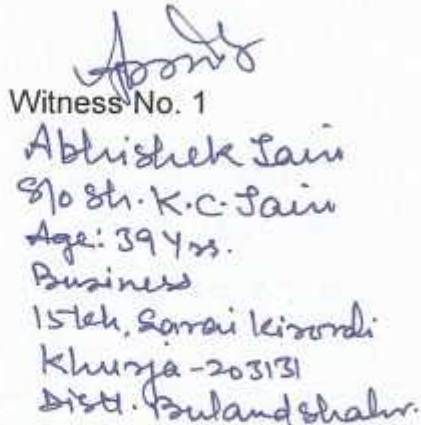 Witness No. 1
Abhishek Jain
S/o Sh. K.C. Jain
Age: 39 Yrs.
Business
Sarai
Khurja - 203131
Distt. Bulandshahr.